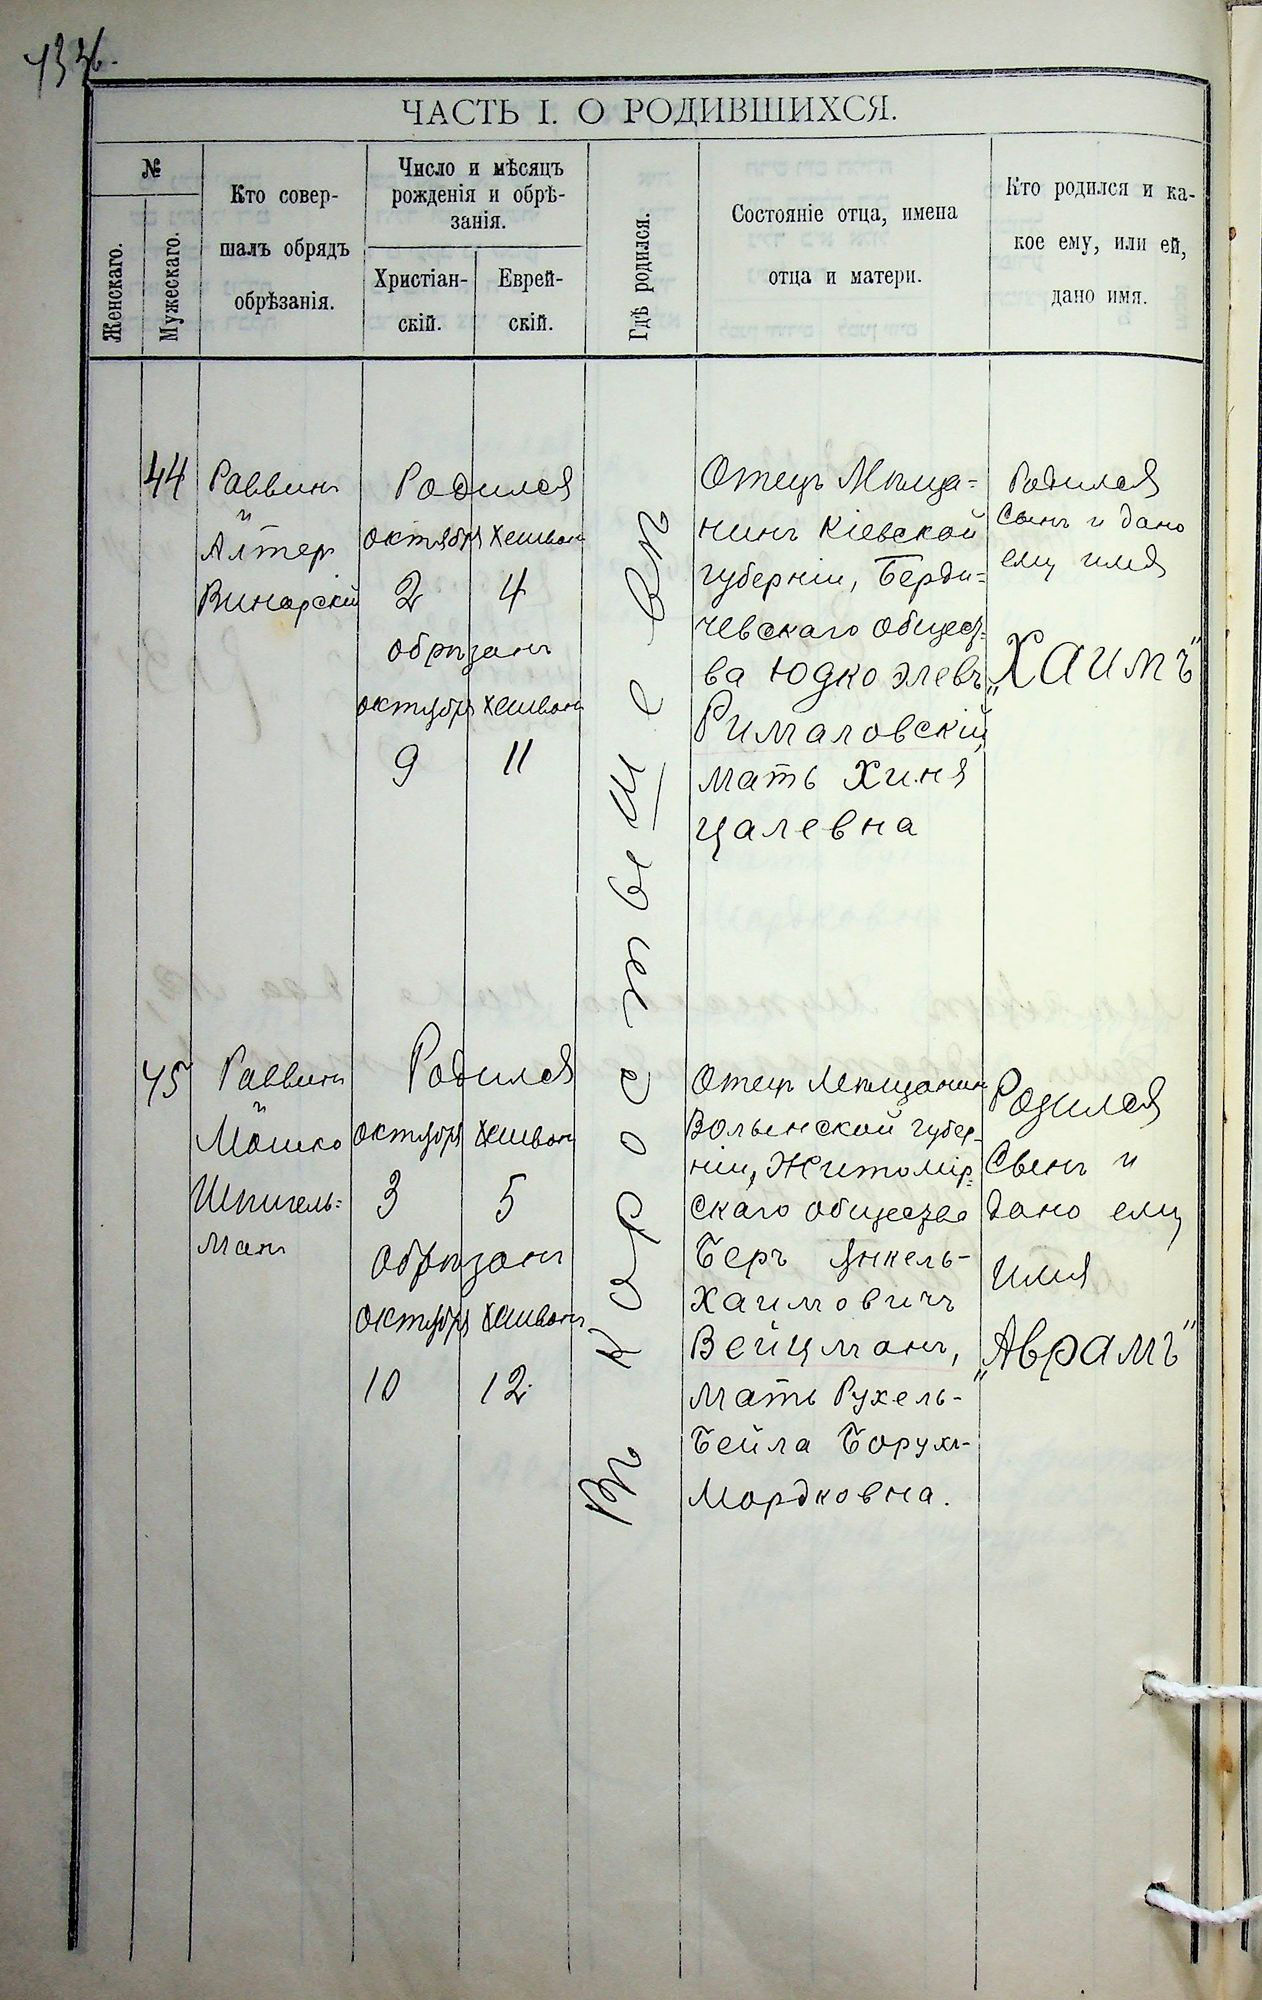 ЧАСТЬ I. О РОДИВШИХСЯ.
№
Женскаго.
Мужескаго.
Кто совер-
шалъ обрядъ
обрѣзанія.
Число и мѣсяцъ
рожденія и обрѣ-
занія.
Христіан-
скій.
Еврей-
скій.
Гдѣ родился.
Состояніе отца, имена
отца и матери.
Кто родился и ка-
кое ему, или ей,
дано имя.
44
Раввинъ
и
Алтер
Винарскій
Родился
октября Хешвон
2 4
обрѣзанъ
октября Хешвон
9 11
Въ Коростышевѣ
Отецъ Мѣща=
нинъ Кіевской
губерніи, Берди=
чевскаго общест=
ва Юдко Элевъ
Рималовскій,
мать Хиня
Цалевна
Родился
Сынъ и дано
ему имя
„Хаимъ"
45
Раввинъ
и
Мошко
Шпигель=
манъ
Родился
октября Хешвон
3 5
Обрѣзанъ
октября Хешвон
10 12
Отецъ Мѣщанин
Волынской губер-
ніи, Житомір-
скаго общества
Беръ Янкель-
Хаимовичъ
Вейцманъ,
мать Рухель-
Бейла Борухъ-
Мордковна.
Родился
Сынъ и
дано ему
имя
„Аврамъ"